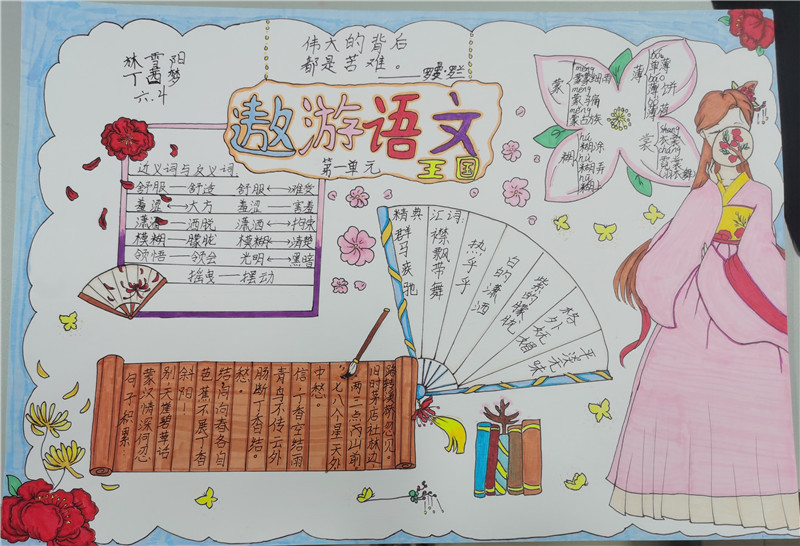 林雪阳
丁茜梦
六.斗
伟大的背后
都是苦难。
——罗曼·罗兰
遨游语文
王国
第一单元
近义词与反义词
舒服——舒适 舒服←→难受
羞涩——大方 羞涩——害羞
潇洒——洒脱 潇洒←→拘束
模糊——朦胧 模糊←→清楚
领悟——领会 光明←→黑暗
摇曳——摆动
蒙
méng
蒙蒙细雨
mēng
měng
蒙古族
薄
báo
单薄
薄饼
bò
薄荷
糊
hú
糊涂
hù
糊弄
hū
裳
shang
衣裳
cháng
霓裳
精典汇词:
群马疾驰
襟飘带舞
热乎乎
白的潇洒
紫的朦胧
格外妩媚
平淡无味
句子积累:
蒙汉情深何忍
别,天涯碧草话
斜阳!
芭蕉不展丁香
结,同向春各自
愁。
肠断丁香结。
青鸟不传云外
信,丁香空结雨
中愁。
七八个星天外
两三点雨山前
旧时茅店社林边
路转溪桥忽见。